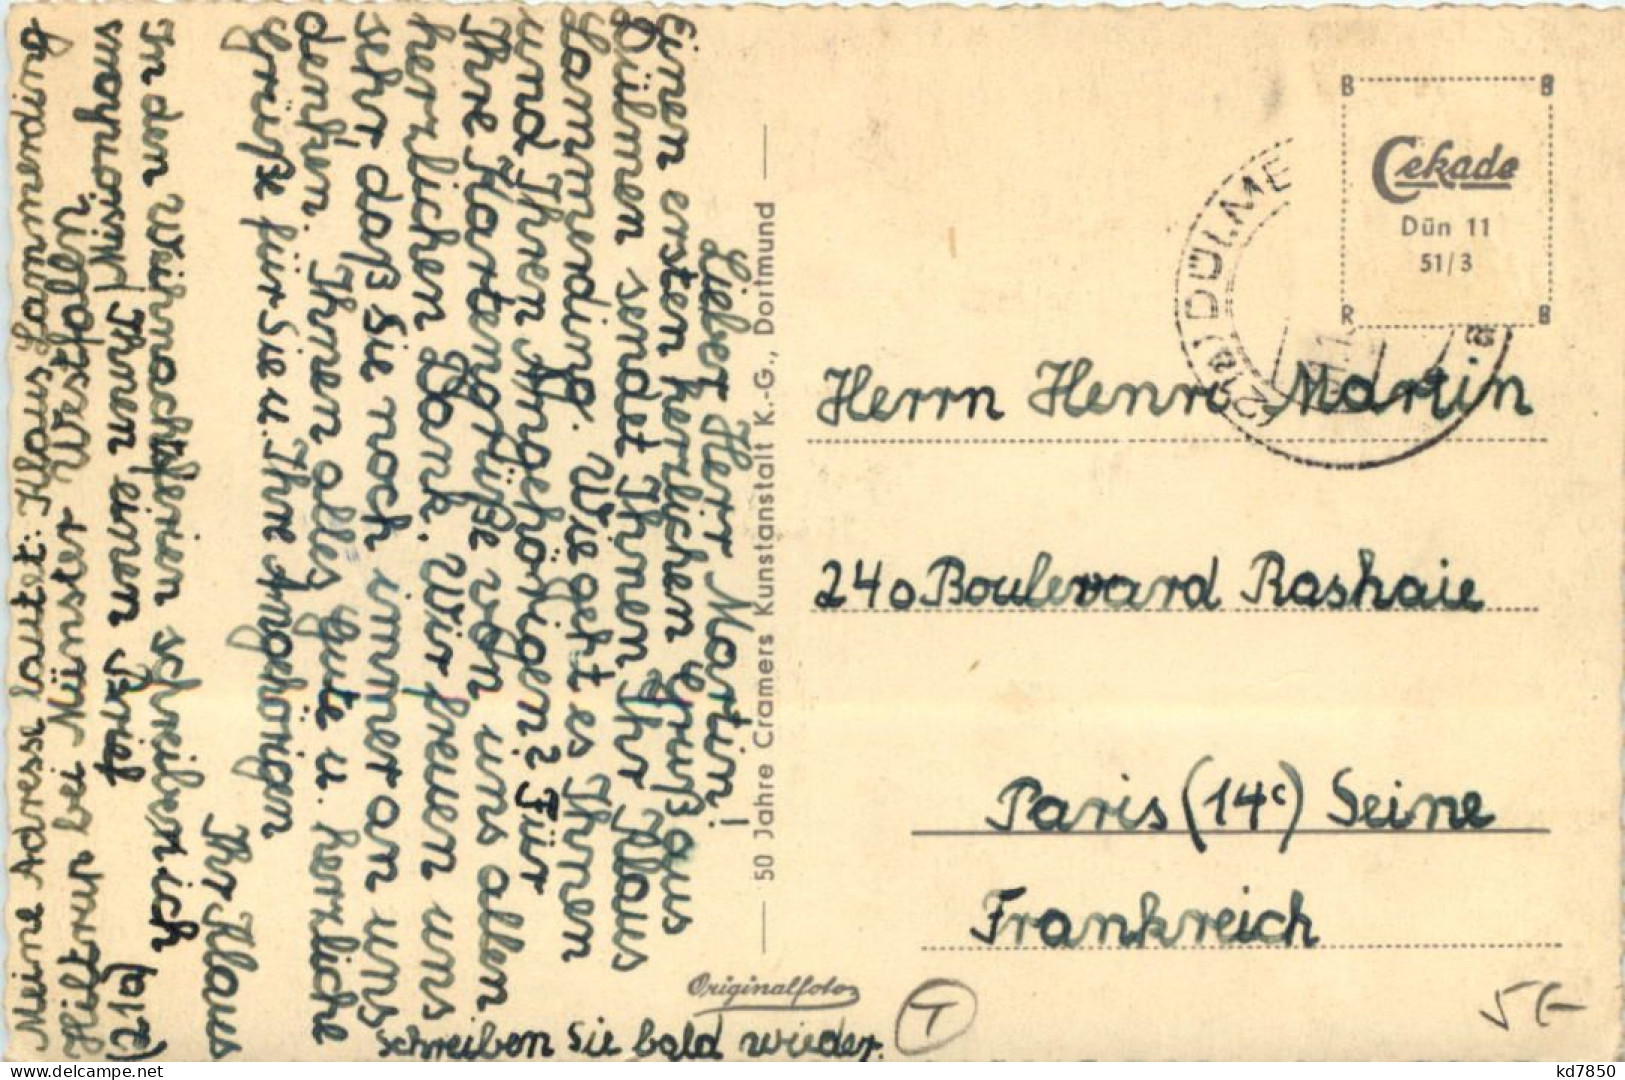 Lieber Herr Martin!
Einen ersten herlichen Gruß aus
Dülmen sendet Ihnen Ihr Klaus
Lammerding. Wie geht es Ihnen
und Ihren Angehörigen? Für
Ihre Kartengrüße von uns allen
herzlichen Dank. Wir freuen uns
sehr, daß Sie noch immer an uns
denken. Ihnen alles Gute u. herzliche
Grüße für Sie u. Ihre Angehörigen
Ihr Klaus
In den Weihnachtsferien schreibe ich
Ihnen einen Brief
Meine Adresse lautet: Klaus Lammerding
Hiltrup bei Münster Westfalen
(21a) Misionhaus
schreiben Sie bald wieder.
50 Jahre Cramers Kunstanstalt K.-G., Dortmund
Originalfoto
Cekade
Dün 11
51/3
B B
R B
(21a) DÜLME
Herrn Henri Martin
240 Boulevard Rashaie
Paris (14c) Seine
Frankreich
T
5€-
kd7850